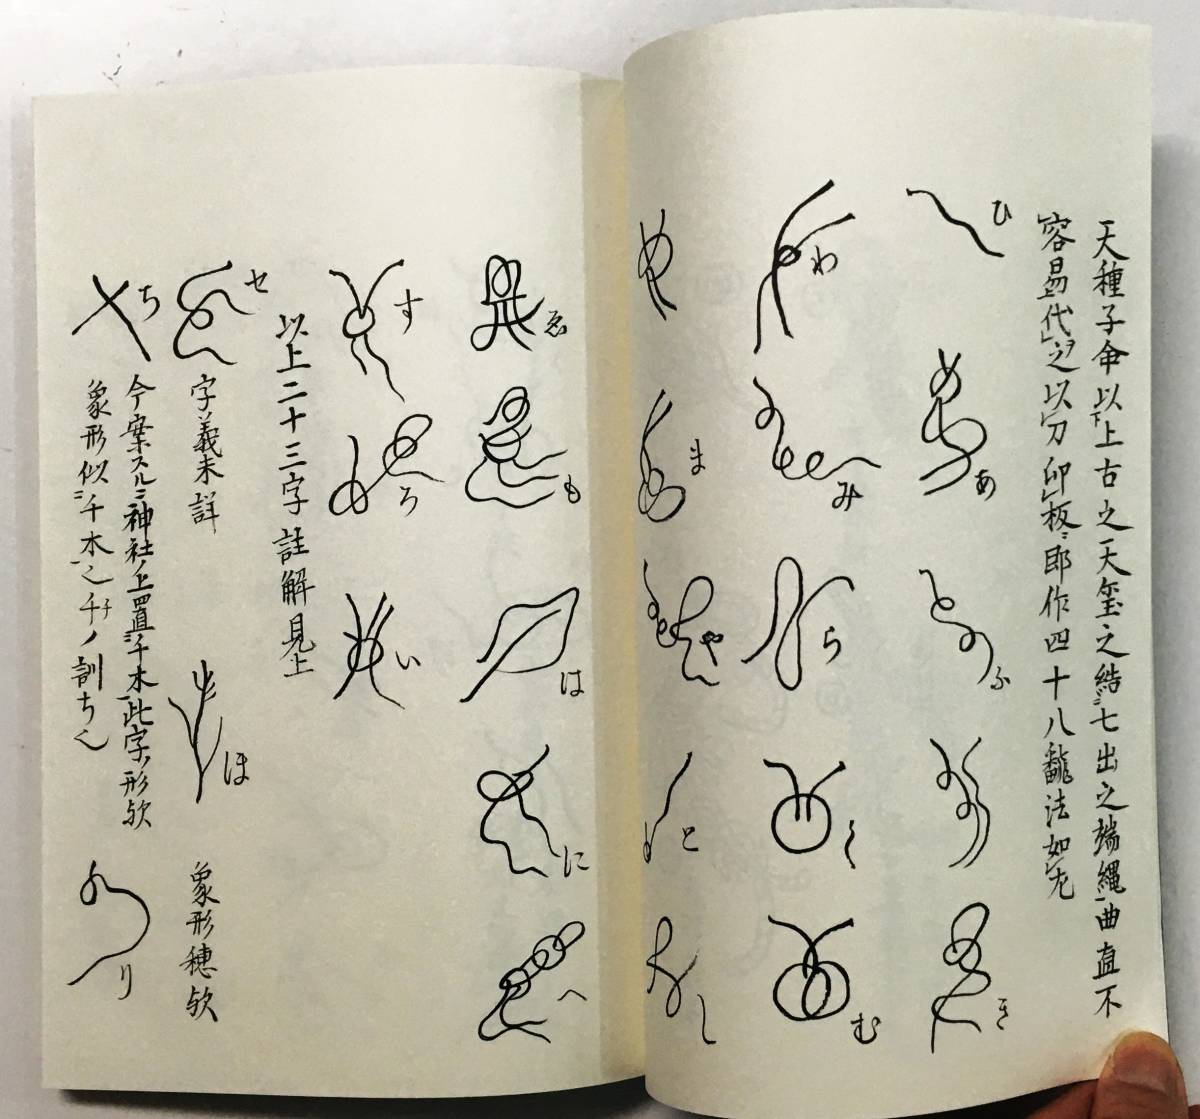 天種子命以下上古之天璽之結ニ七出之端縄曲直不
容易代ヲ之以刀印板ニ即作四十八法如左
ひ
あ
ふ
き
わ
み
ら
く
む
ま
や
と
し
ゑ
も
は
に
へ
す
ろ
い
以上二十三字註解見上
セ 字義未詳
ほ 象形穂欤
ち 今案スルニ神社ノ上置ニ千木此字ノ形欤
象形似ニ千木之千ノ訓ち
り